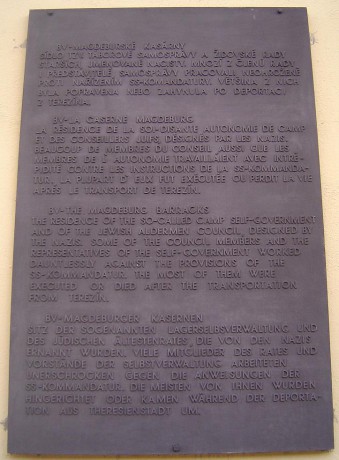 BV-MAGDEBURSKÉ KASÁRNY
SÍDLO TZV. TÁBOROVÉ SAMOSPRÁVY A ŽIDOVSKÉ RADY
STARŠÍCH, JMENOVANÉ NACISTY. MNOZÍ Z ČLENŮ RADY
I PŘEDSTAVITELÉ SAMOSPRÁVY PRACOVALI NEOHROŽENĚ
PROTI NAŘÍZENÍM SS-KOMANDATURY. VĚTŠINA Z NICH
BYLA POPRAVENA NEBO ZAHYNULA PO DEPORTACI
Z TEREZÍNA.
BV-LA CASERNE MAGDEBURG
LA RÉSIDENCE DE LA SOI-DISANTE AUTONOMIE DE CAMP
ET DES CONSEILLERS JUIFS, DÉSIGNÉS PAR LES NAZIS.
BEAUCOUP DE MEMBRES DU CONSEIL AUSSI QUE LES
MEMBRES DE L' AUTONOMIE TRAVAILLAIENT AVEC INTRÉ-
PIDITÉ CONTRE LES INSTRUCTIONS DE LA SS-KOMMANDA-
TUR. LA PLUPART D' EUX FUT EXÉCUTÉE OU PERDIT LA VIE
APRÈS LE TRANSPORT DE TEREZÍN.
BV-THE MAGDEBURG BARRACKS
THE RESIDENCE OF THE SO-CALLED CAMP SELF-GOVERNMENT
AND OF THE JEWISH ALDERMEN COUNCIL, DESIGNED BY
THE NAZIS. SOME OF THE COUNCIL MEMBERS AND THE
REPRESENTATIVES OF THE SELF-GOVERNMENT WORKED
DAUNTLESSLY AGAINST THE PROVISIONS OF THE
SS-KOMMANDATUR. THE MOST OF THEM WERE
EXECUTED OR DIED AFTER THE TRANSPORTATION
FROM TEREZÍN.
BV-MAGDEBURGER KASERNEN
SITZ DER SOGENANNTEN LAGERSELBSVERWALTUNG UND
DES JÜDISCHEN ÄLTESTENRATES, DIE VON DEN NAZIS
ERNANNT WURDEN. VIELE MITGLIEDER DES RATES UND
VORSTÄNDE DER SELBSTVERWALTUNG ARBEITETEN
UNERSCHROCKEN GEGEN DIE ANWEISUNGEN DER
SS-KOMMANDATUR. DIE MEISTEN VON IHNEN WURDEN
HINGERICHTET ODER KAMEN WÄHREND DER DEPORTA-
TION AUS THERESIENSTADT UM.